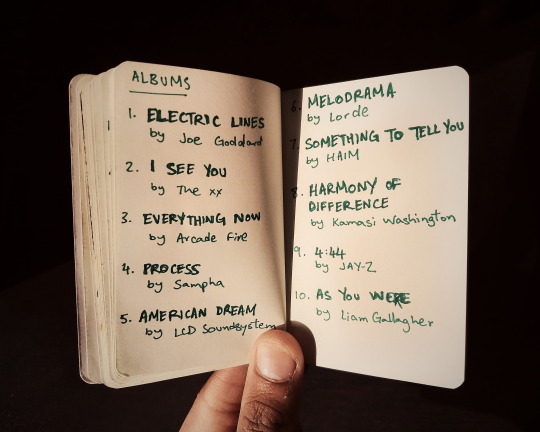 ALBUMS
1. ELECTRIC LINES
by Joe Goddard
2. I SEE YOU
by The xx
3. EVERYTHING NOW
by Arcade Fire
4. PROCESS
by Sampha
5. AMERICAN DREAM
by LCD Soundsystem
6. MELODRAMA
by Lorde
7. SOMETHING TO TELL YOU
by HAIM
8. HARMONY OF
DIFFERENCE
by Kamasi Washington
9. 4:44
by JAY-Z
10. AS YOU WERE
by Liam Gallagher